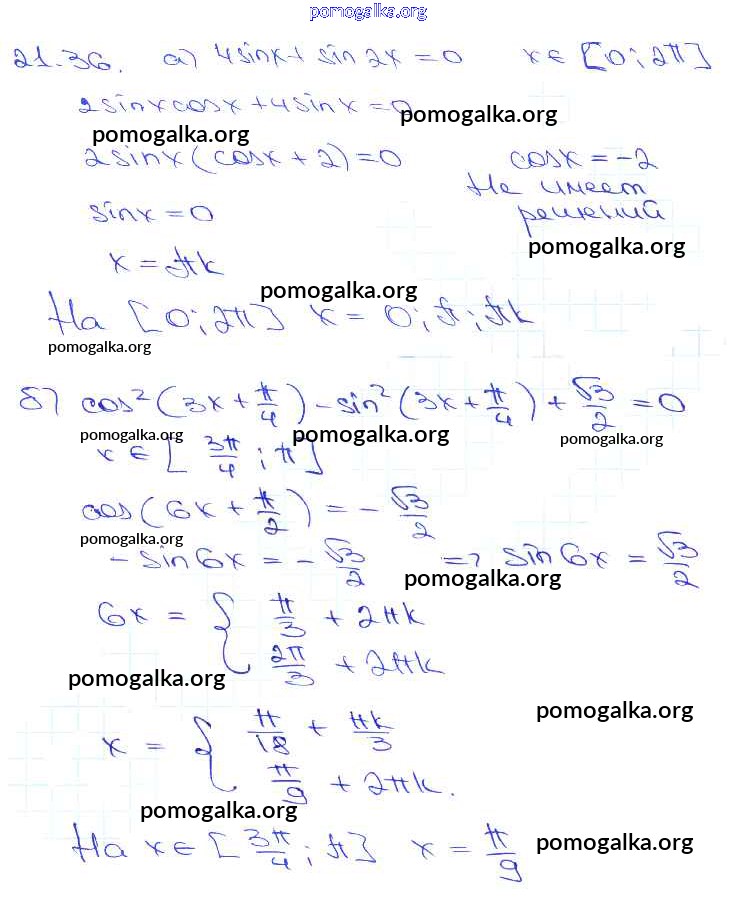 pomogalka.org
21.36. а) 4sinx + sin2x = 0   x ∈ [0; 2π]
2sinxcosx + 4sinx = 0
pomogalka.org
pomogalka.org
2sinx(cosx + 2) = 0   cosx = -2
Не имеет
sinx = 0   решений
pomogalka.org
x = πk
pomogalka.org
На [0; 2π] x = 0; π; πk
pomogalka.org
б) cos²(3x + π/4) - sin²(3x + π/4) + √3/2 = 0
pomogalka.org pomogalka.org pomogalka.org
x ∈ [3π/4; π]
cos(6x + π/2) = -√3/2
pomogalka.org
-sin6x = -√3/2 => sin6x = √3/2
pomogalka.org
6x = { π/3 + 2πk
2π/3 + 2πk
pomogalka.org
pomogalka.org
x = { π/18 + πk/3
π/9 + 2πk.
pomogalka.org
На x ∈ [3π/4; π] x = π/9
pomogalka.org